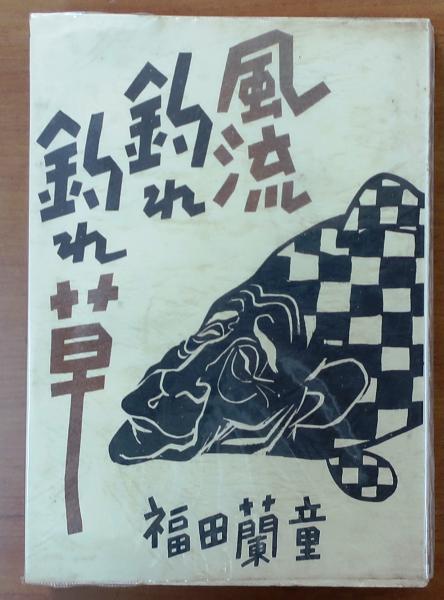 風流
釣れ
釣れ草
福田蘭童